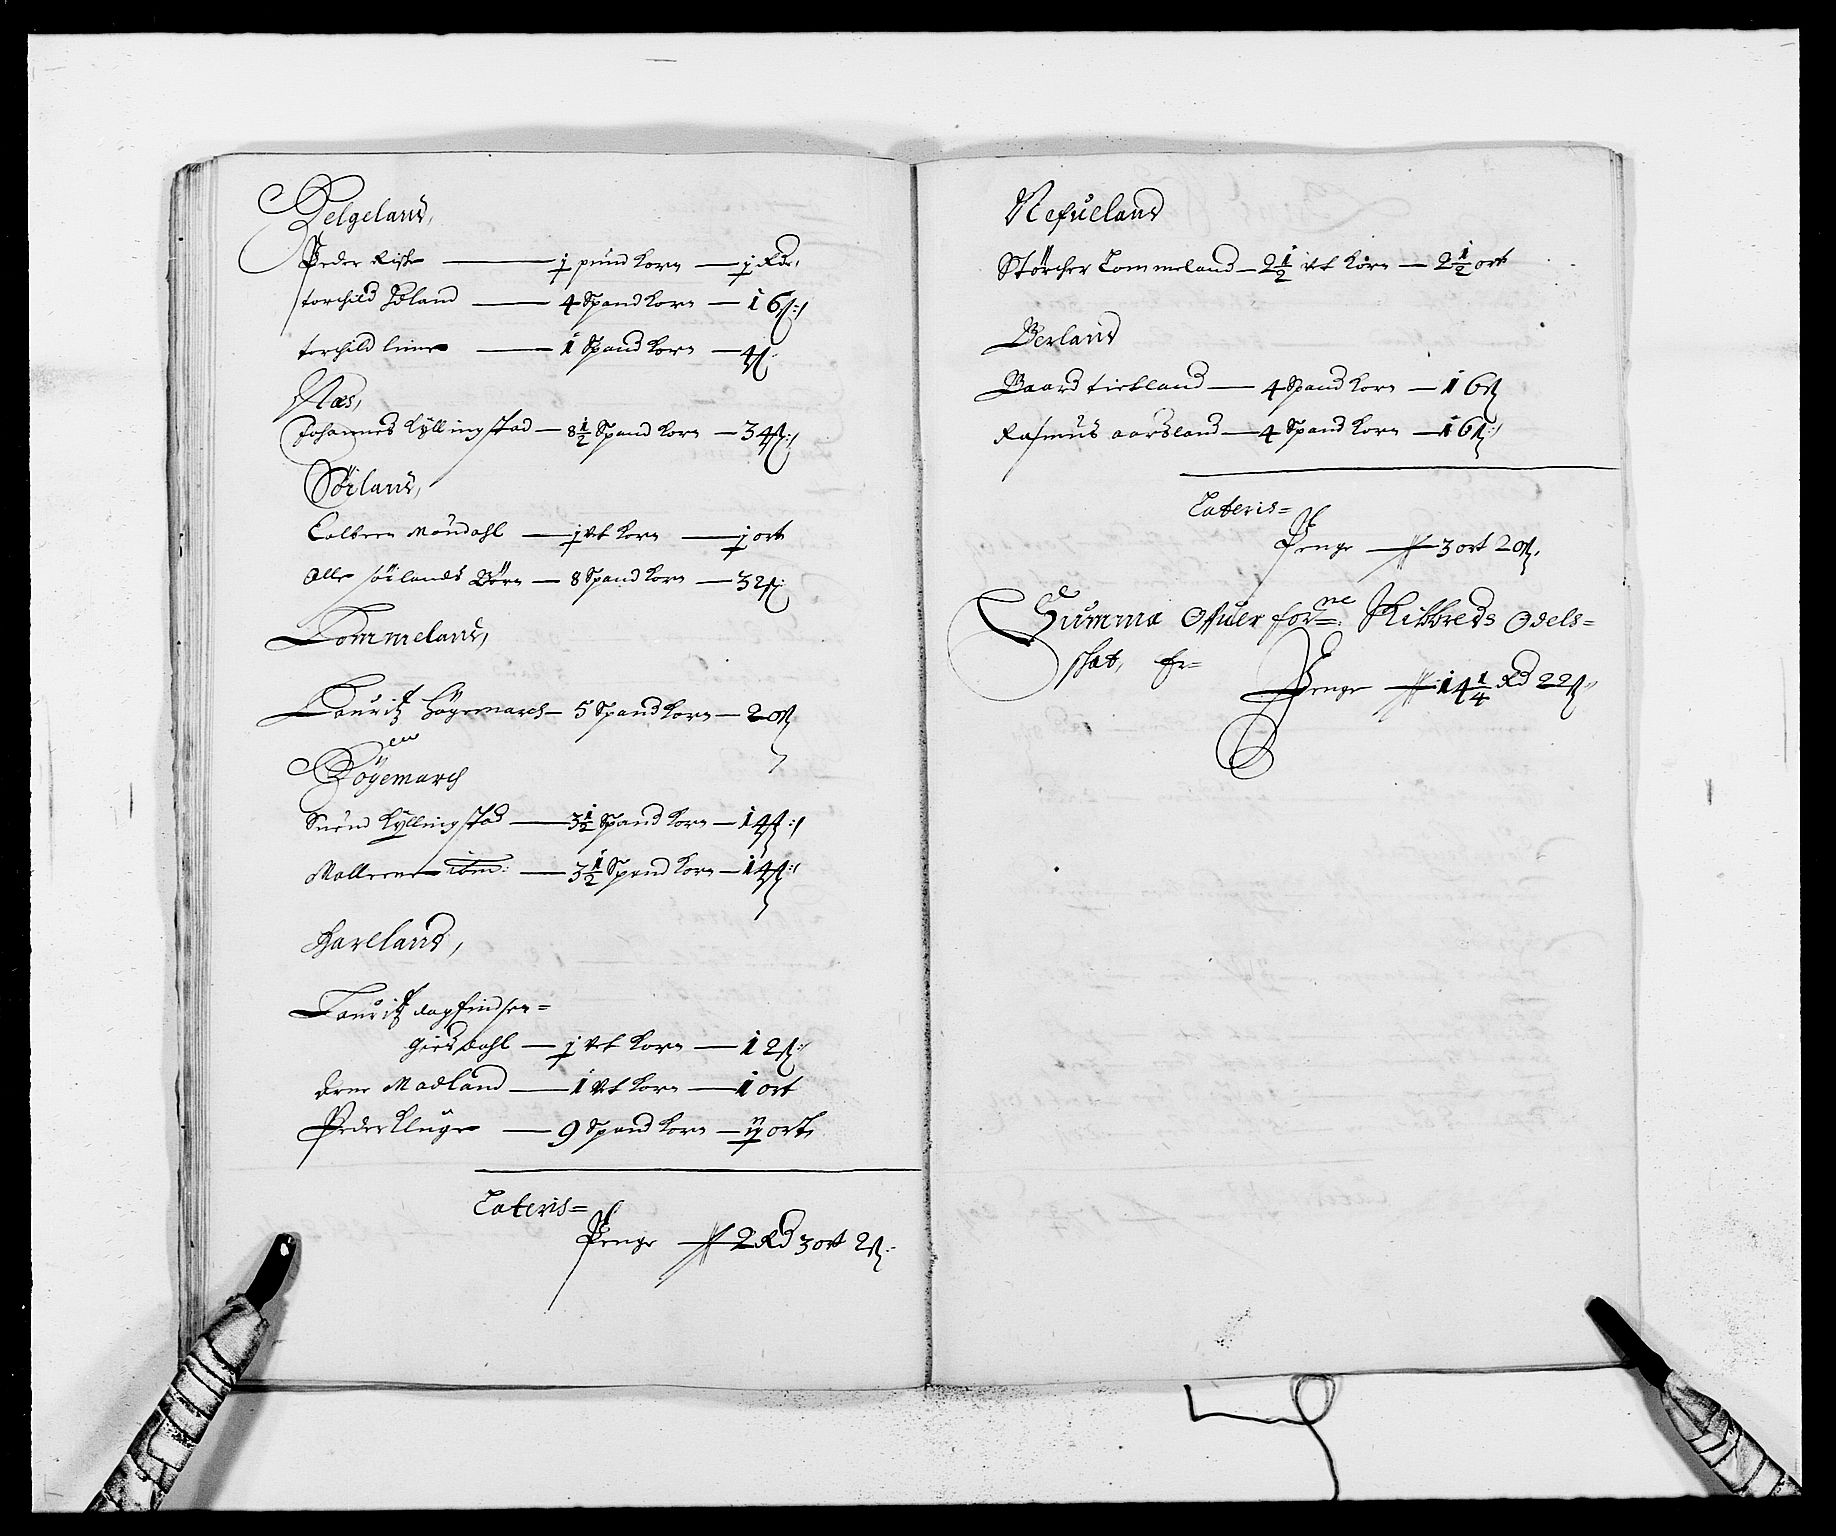 Helgeland,
Peder Riske — j pund Korn — j Rdr,
torchild Høland — 4 Spand Korn — 16 ß:
torchild lime — 1 Spand Korn — 4 ß:
Næs,
Johannes Kyllingstad — 8½ Spand Korn — 34 ß:
Sørland,
Colben Møndahl — j vet Korn — j ort
Olle sørlands Börn — 8 Spand Korn — 32 ß:
Tommeland,
Lauritz Høyemarch — 5 Spand Korn — 20 ß
Høyemarch
Suend Kyllingstad — 3½ Spand Korn — 14 ß:
Mallene ibm: — 3½ Spand Korn — 14 ß:
Harland,
Lauritz dagfindsen=
giesdahl — j vet Korn — 12 ß:
Madland — 1 vet Korn — 1 ort
Peder Kluge — 9 Spand Korn — ij ort,
Lateris=
Penge — 2 Rd 3 ort 2 ß:
Refueland
Störcher Tommeland — 2½ vet Korn — 2½ ort
Berland
Baard tieland — 4 Spand Korn — 16 ß
Rasmus aarsland — 4 Spand Korn — 16 ß:
Lateris=
Penge — 3 ort 20 ß.
Summa Ofuer forne: Schibreds Odels=
schat, er=
Penge — 14¼ Rd 22 ß.